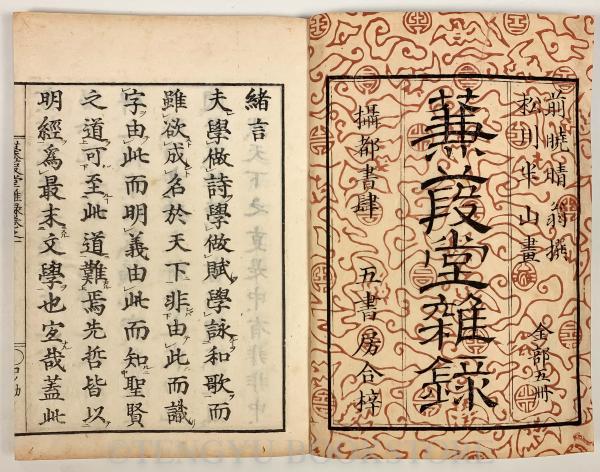 前曉晴翁撰
松川半山畫
全部五冊
蒹葭堂雜録
攝都書肆 五書房合梓
緒言
夫學做詩學做賦學詠和歌而
雖欲成名於天下非由此而識
字由此而明義由此而知聖賢
之道可至此道難焉先哲皆以
明經爲最末文學也宜哉蓋此
©TENGYU BOOKSTORE